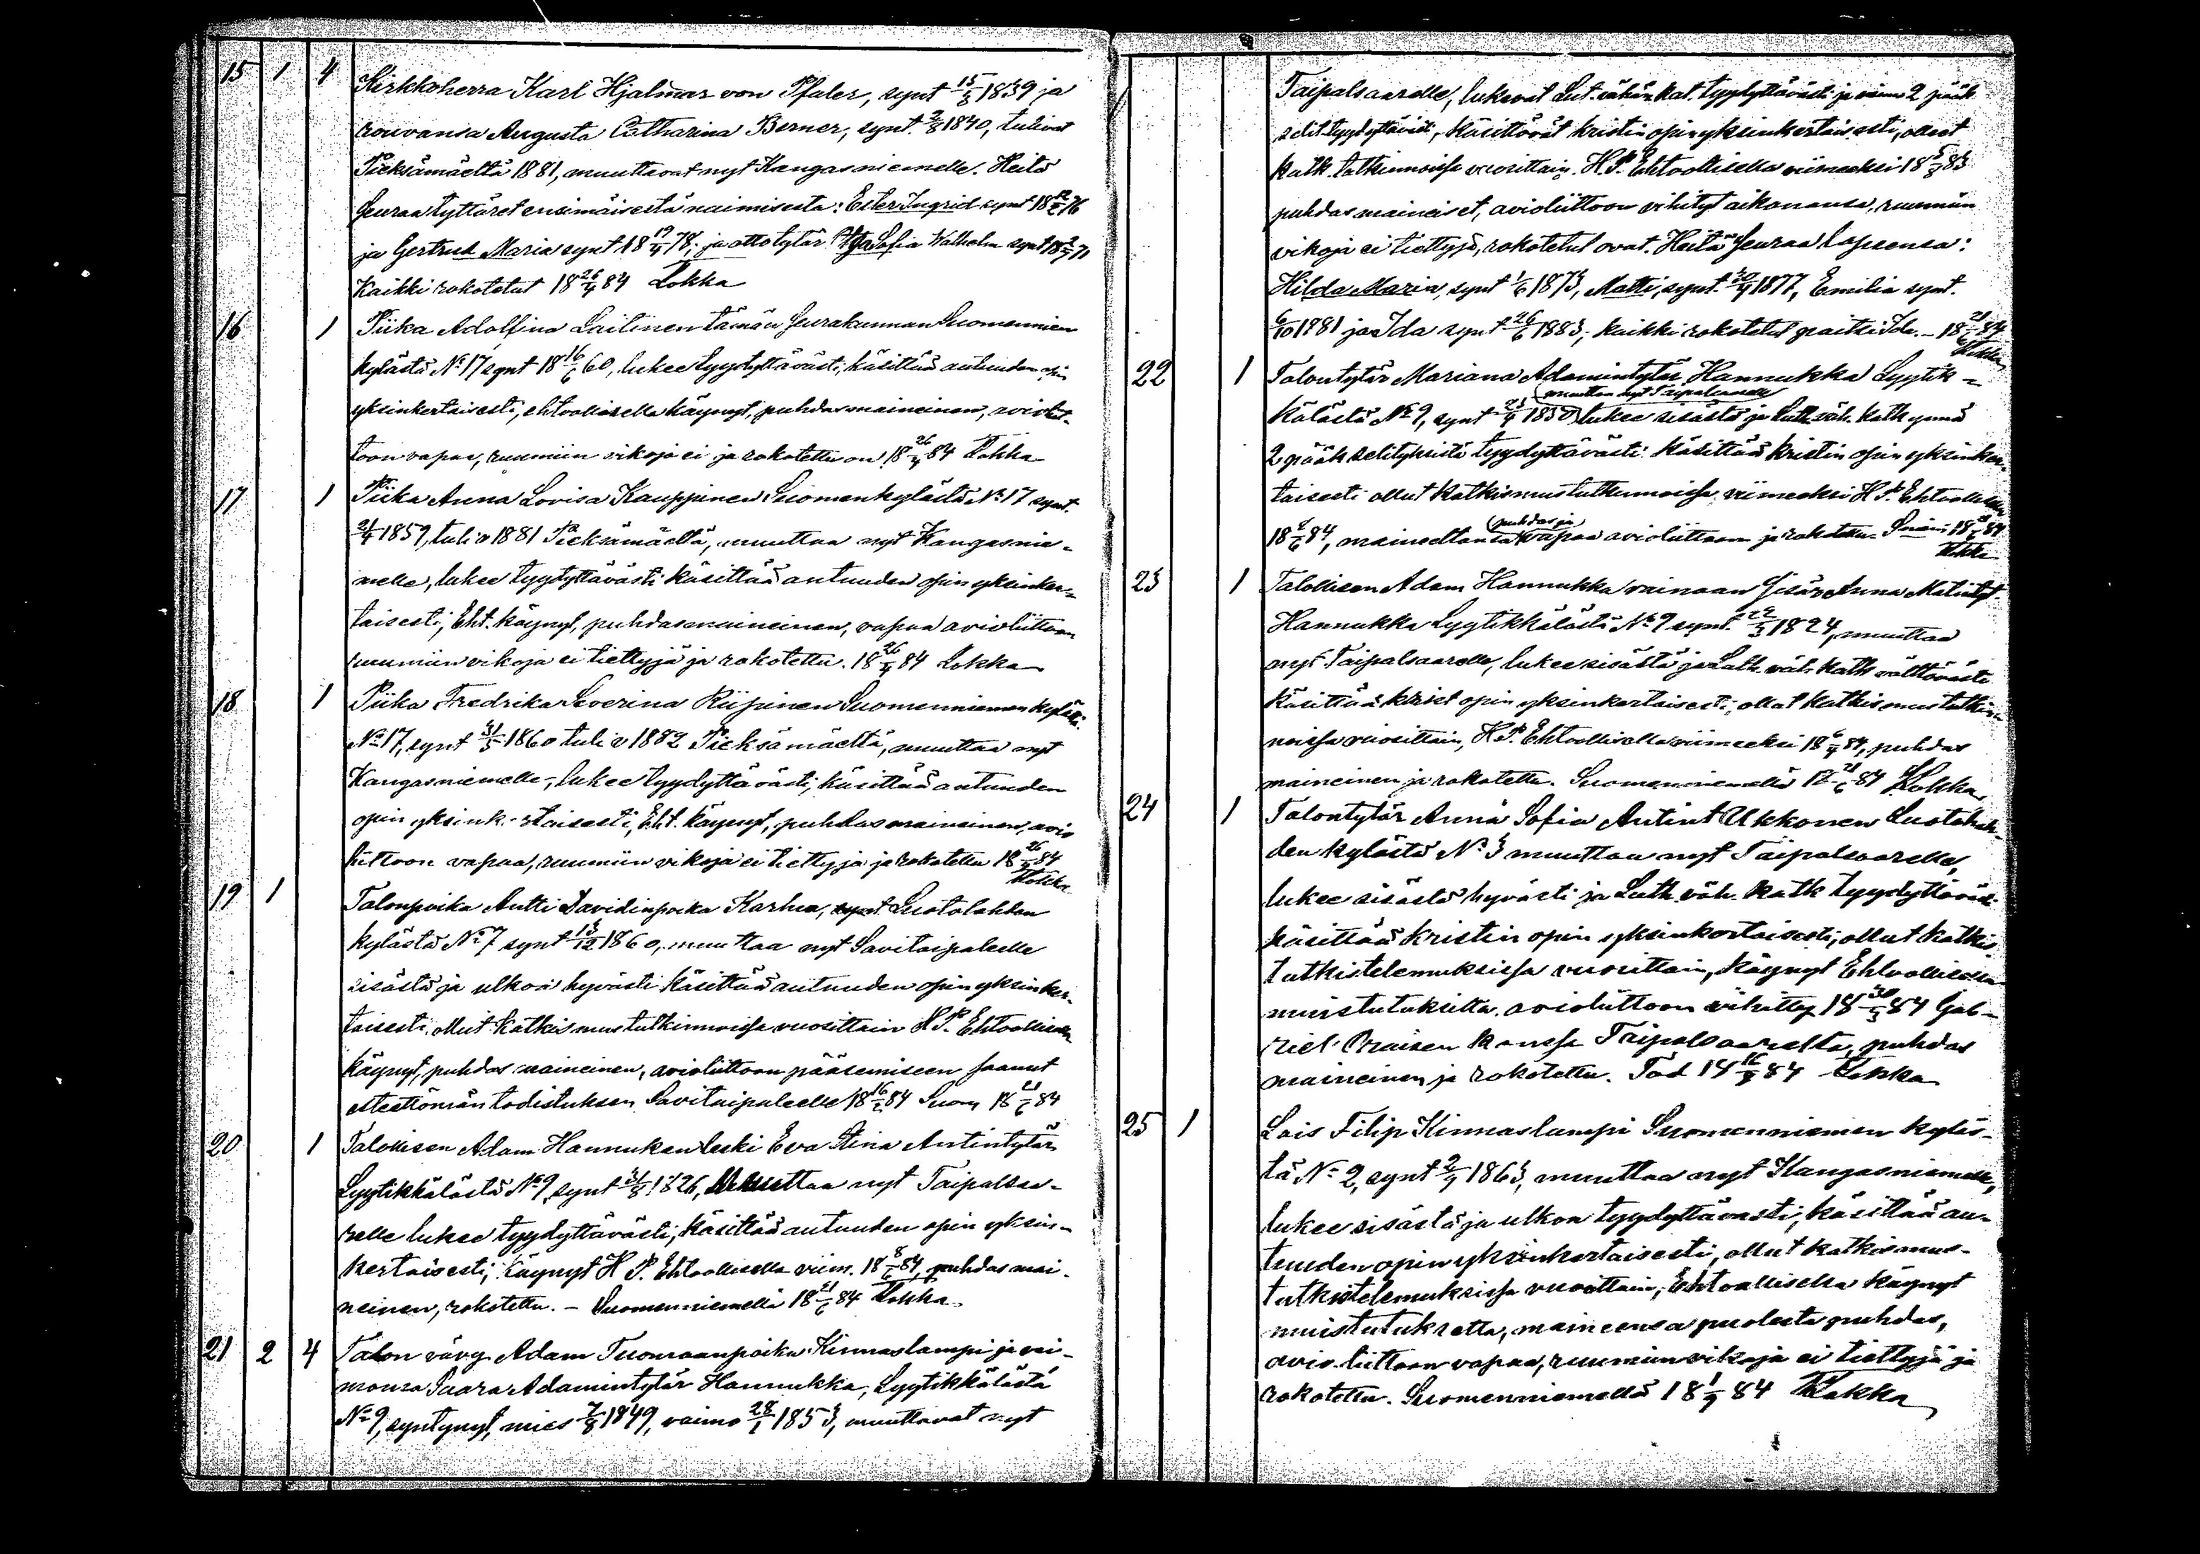 15 1 4 Kirkkoherra Karl Hjalmar von Pfaler, synt 15/8 1839 ja
rouvansa Augusta Catharina Berner, synt. 2/8 1840, tulivat
Pieksämäeltä 1881, muuttavat nyt Kangasniemelle. Heitä
seuraa tyttäret ensimäisestä naimisesta: Ester Ingrid synt 18 76
ja Gertrud Maria synt. 18 19/4 78; ja ottotytär Sofia Walholm synt 71
Kaikki rokotetut 18 26/4 84 Lokka
16 1 Piika Adolfina Laitinen tämän seurakunnan Suomennien
kylästä No 17 synt 18 16/6 60, lukee tyydyttävästi, käsittää autuuden opin
yksinkertaisesti, ehtoollisella käynyt, puhdasmaineinen, aviolit-
toon vapaa, ruumiin vikoja ei ja rokotettu on 18 26/4 84 Lokka
17 1 Piika Anna Lovisa Kauppinen Suomenkylästä No 17 synt.
21/4 1859, tuli v 1881 Pieksämäeltä, muuttaa nyt Kangasnie-
melle, lukee tyydyttävästi käsittää autuuden opin yksinker-
taisesti, Eht. käynyt, puhdasmaineinen, vapaa avioliittoon
ruumiin vikoja ei tiettyjä ja rokotettu. 18 26/4 84 Lokka
18 1 Piika Fredrika Severina Riipinen Suomenniemen kylästä
No 17, synt 31/5 1860 tuli v 1882 Pieksämäeltä, muuttaa nyt
Kangasniemelle, lukee tyydyttävästi, käsittää autuuden
opin yksink-rtaisesti, Eht. käynyt, puhdasmaineinen, avio
liittoon vapaa, ruumiin vikoja ei tiettyjä ja rokotettu 18 26/4 84
Lokka
19 1 Talonpoika Antti Davidinpoika Karhu, synt. Luotolahden
kylästä No 7 synt 13/12 1860, muuttaa nyt Savitaipaleelle
sisästä ja ulkoa hyvästi käsittää autuuden opin yksinker-
taisesti, ollut katkismustutkinnoissa vuosittain H.P. Ehtoollisella
käynyt, puhdasmaineinen, avioliittoon pääsemiseen saanut
esteettömän todistuksen Savitaipaleelle 18 84 Suom 18 21/6 84
20 1 Talokisen Adam Hannukan leski Eva Stina Antintytär
Lyytikkälästä No 9, synt 1826, Muuttaa nyt Taipalsaa-
relle lukee tyydyttävästi, käsittää autuuden opin yksin-
kertaisesti, käynyt H.P. Ehtoollisella viim. 18 8/6 84, puhdasmai-
neinen, rokotettu. - Suomenniemellä 18 21/6 84 Lokka
21 2 4 Talon vävy Adam Tuomaanpoika Kinnaslampi ja vai-
monsa Saara Adamintytär Hannukka, Lyytikkälästä
No 9, syntynyt, mies 7/8 1849, vaimo 28/1 1853, muuttavat nyt
Taipalsaarelle, lukevat Lut. vähän kat. tyydyttävästi ja viim 2 pääk
selit. tyydyttäväst, käsittävät kristin opin yksinkertaisesti, olleet
katk. tutkinnoissa vuosittain. H.P. Ehtoollisella viimeeksi 18 83
puhdasmaineiset, avioliittoon vihityt aikanansa, ruumiin
vikoja ei tiettyjä, rokotetut ovat. Heitä seuraa lapsensa:
Hilda Maria, synt 1/6 1873, Matti, synt. 20/9 1877, Emilia synt.
6/10 1881 ja Ida synt 26/6 1883, kaikki rokotetut paitsi Ida. - 18 21/6 84
Lokka
22 1 Talontytär Mariana Adamintytär Hannukka Lyytik-
muuttaa nyt Taipalsaarelle
kälästä No 9, synt 1850 lukee sisästä ja Luth. väh. kath. ynnä
2 pääk selityksistä tyydyttävästi käsittää kristin opin yksinker-
taisesti ollut katkismustutkinnoissa, viimeeksi H P. Ehtoollisella
puhdas ja
18 84, maineeltansa vapaa avioliittoon ja rokotettu Snäm 18 21/6 84
Lokka
23 1 Talokisen Adam Hannukka vainaan sisär Anna Matintyt
Hannukka Lyytikkälästä No 9 synt. 22/3 1824, muuttaa
nyt Taipalsaarelle, lukee sisästä ja Luth. väh. kath välttävästi
käsittää krist opin yksinkertaisesti, ollut katkismustutkin-
noissa vuosittain, H.P. Ehtoollisella viimeeksi 18 84, puhdas
maineinen ja rokotettu. Suomenniemellä 18 21/6 84 Lokka
24 1 Talontytär Anna Sofia Antint Ukkonen Luotolah-
den kylästä No 3 muuttaa nyt Taipalsaarelle,
lukee sisästä hyvästi ja Luth. väh. katk tyydyttäväs.
käsittää kristin opin yksinkertaisesti, ollut katkis-
tutkistelemuksissa vuosittain, käynyt Ehtoollisella
muistutuksetta avioliittoon vihitty 18 30/3 84 Gab-
riel kanssa Taipalsaarelta, puhdas
maineinen ja rokotettu. Tod 18 84 Lokka
25 1 Lois Filip Kinnaslampi Suomenniemen kyläs-
tä No 2, synt 2/4 1863, muuttaa nyt Kangasniemelle,
lukee sisästä ja ulkoa tyydyttävästi, käsittää au-
tuuden opin yksinkertaisesti, ollut katkismus-
tutkistelemuksissa vuosittain, Ehtoollisella käynyt
muistutuksetta, maineensa puolesta puhdas,
avioliittoon vapaa, ruumiin vikoja ei tiettyjä ja
rokotettu. Suomenniemellä 18 1/9 84 Lokka